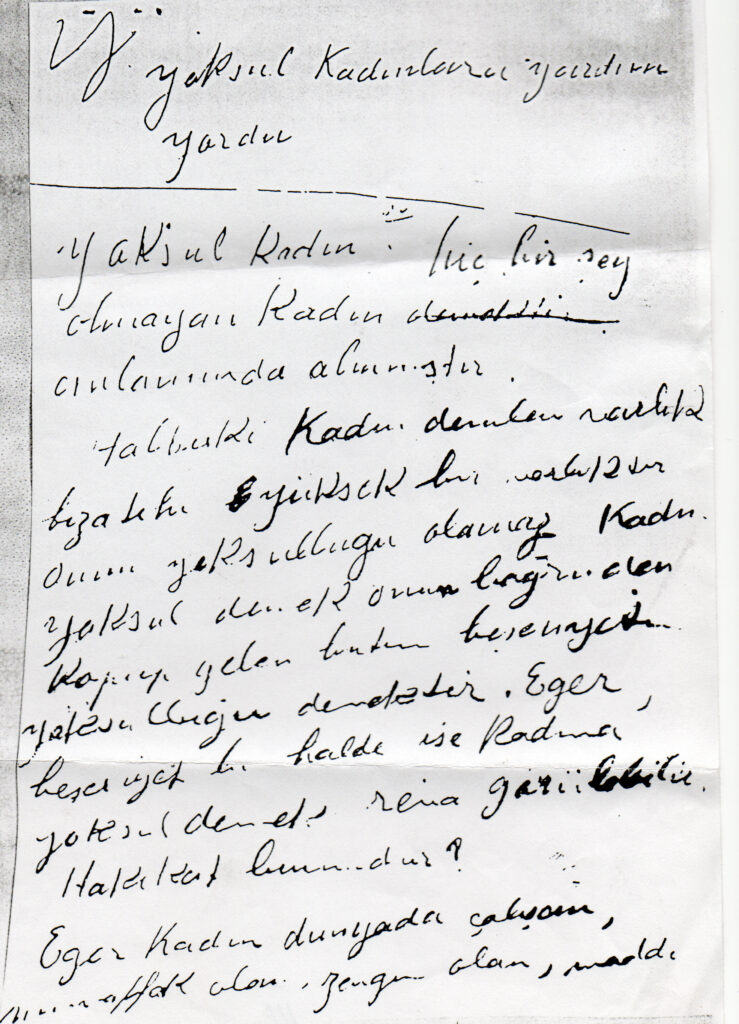 Yoksul Kadınlara yardım
yordu
Yoksul Kadın : hiç bir şey
olmayan Kadın
anlamında alınmıştır.
Halbuki Kadın denilen varlık
bizatihi yüksek bir varlıktır
onun yoksulluğu olamaz Kadın
yoksul demek onun bağrından
Kopup gelen bütün beşeriyetin
yoksulluğu demektir. Eğer
beşeriyet bu halde ise Kadına
yoksul demek reva görülebilir.
Hakikat bumudur?
Eger Kadın dunyada çalışan,
muvaffak olan, zengin olan, maddi